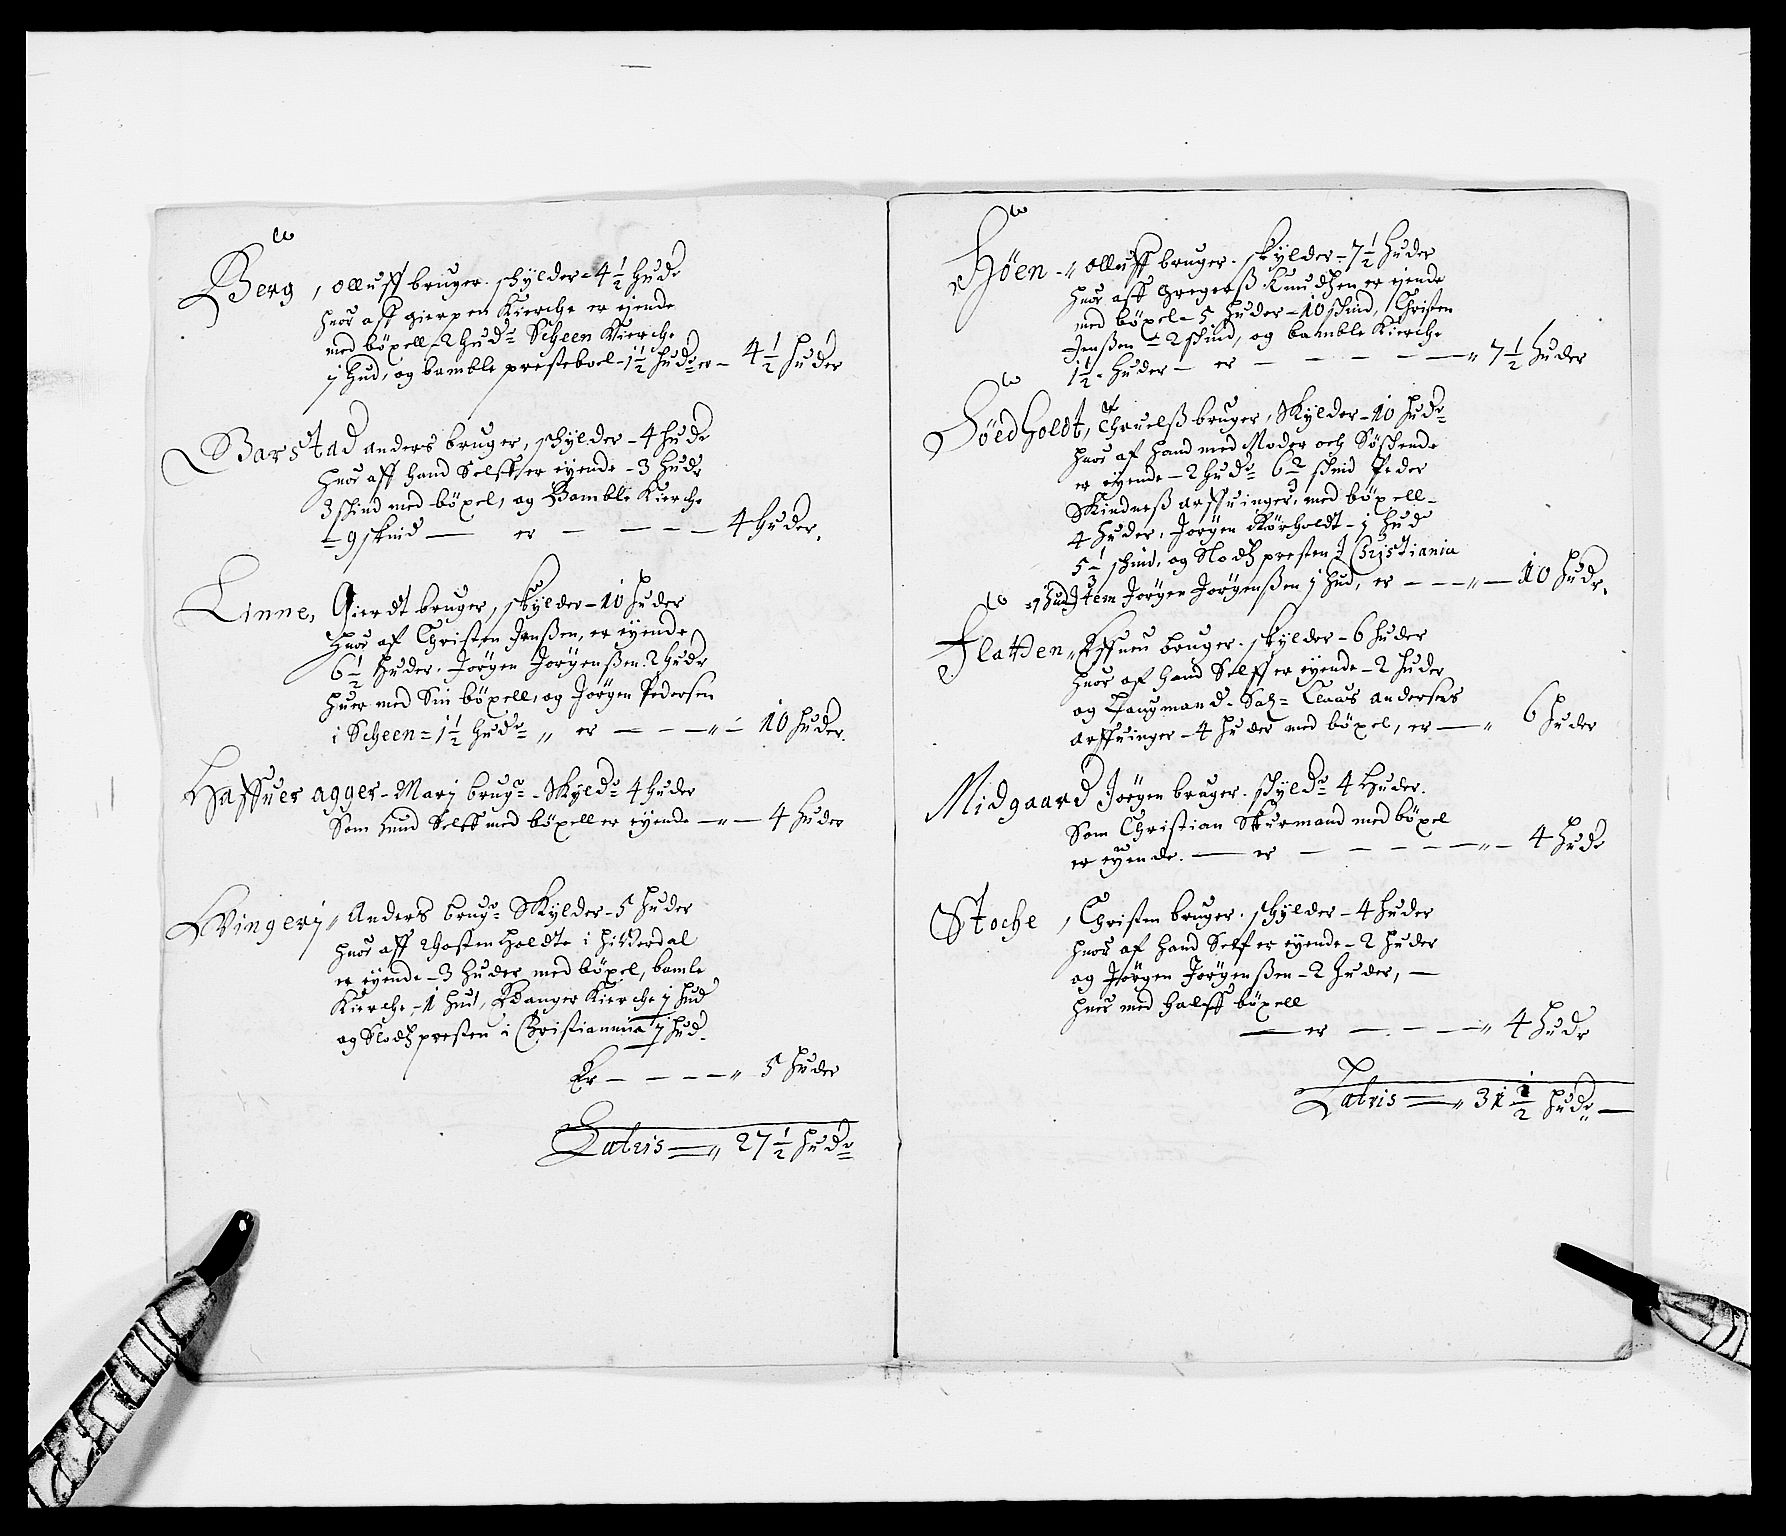 Berg, olluff bruger. skÿlder - 4½ hude
huor aff gierpen Kierche er ejende
med böxell - 2 hudr Scheen Kierche
j hud, og bamble presteboel - 1½ hudr er - 4½ huder
Barstad anders bruger, skÿlder - 4 hude
huor aff hand Selff er eyende - 3 hudr
3 skind med böxel, og Bamble Kierche
- 9 skind — er — — — 4 huder.
Linne, Gierdt bruger, skÿlder - 10 huder
huor af Christen Jenßen, er eyende
6½ huder. Jörgen Jörgenßen. 2 hudr
huer med Sin böxell, og Jörgen Pedersen
i Scheen = 1½ hudr „ er — — — „ — 10 huder
Haffuer agger - Marj brugr - Skÿldr 4 huder
Som hund Selff med böxell er eyende — „ — 4 huder
Wingerj „ Anders brugr Skÿlder - 5 huder
huor aff Holdte i hitterdal
er eyende - 3 huder med böxel, bamle
Kierche - 1 hud, Edanger Kierche j hud
og Slodz presten i Christiannia j hud.
Er — — — „ 5 huder
Latris = „ 27½ hudr
Höen - „ olluff bruger. skÿlder - 7½ huder
huor aff Gregerß Knudzen er ejende
med böxel - 5 huder - 10 skind, Christen
Jenßen - 2 skind, og bamble Kierche
1½ - huder — er — — — — „ 7½ huder
Höedholdt, Chruelß bruger, Skÿlder - 10 hudr
huor af hand med Moder och Söschende
er eyende - 2 hudr 6½ skind Peder
Skindneß arffuinger, med böxell -
4 huder, Jörgen Rörholdt - j hud
5½ skind, og Slodz presten J Christiania
1 hud Jtem Jörgen Jörgenßen j hud, er — — „ — 10 hudr.
Flatten „ Effuen bruger. skÿlder - 6 huder
huor af hand Selff er eyende - 2 huder
og Laugmand. Sal= Claus andersens
arffuinger - 4 huder med böxel, er — „ 6 huder
Midgaard Jörgen bruger. skÿldr 4 huder.
Som Christian Skurmand med böxel
er eyende. — er — — — — „ — 4 hude
Stoche, Christen bruger. skÿlder - 4 huder
huor af hand Self er eyende - 2 huder
og Jörgen Jörgenßen - 2 huder, —
huer med halff böxell
— er — — — „ 4 hudr
Latris = „ 31½ hudr —